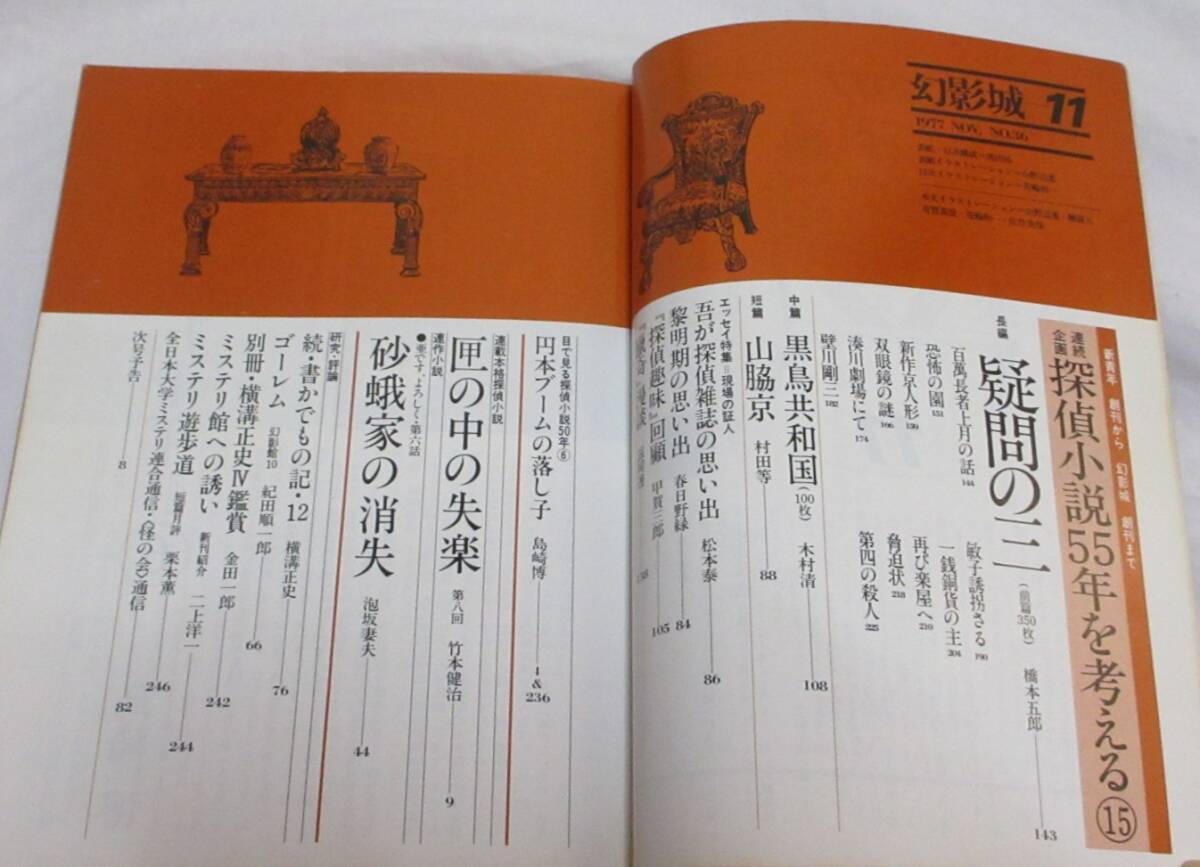 幻影城 11
1977 NOV. NO.36
新青年 創刊から 幻影城 創刊まで
連続企画 探偵小説55年を考える⑮
長編
疑問の三 (前篇350枚) 橋本五郎 143
百萬長者上月の話 144
恐怖の園 151
新作京人形 159
双眼鏡の謎 166
湊川劇場にて 174
壁川剛三 182
敏子誘拐さる 190
一銭銅貨の主 204
再び楽屋へ 210
脅迫状 218
第四の殺人 225
中篇
黒鳥共和国 (100枚) 木村清 108
短篇
山脇京 村田等 88
エッセイ特集=現場の証人
吾が探偵雑誌の思い出 松本泰 86
黎明期の思い出 春日野緑 84
『探偵趣味』回顧 甲賀三郎 105
138
目で見る探偵小説50年⑥
円本ブームの落し子 島崎博 4&236
連載本格探偵小説
匣の中の失楽 第八回 竹本健治 9
連作小説
●亜です。よろしく・第六話
砂蛾家の消失 泡坂妻夫 44
研究・評論
続・書かでもの記・12 横溝正史 76
ゴーレム 幻影館10 紀田順一郎 66
別冊 横溝正史Ⅳ鑑賞 金田一郎 242
ミステリ館への誘い 新刊紹介 二上洋一 244
ミステリ遊歩道 短篇月評 栗本薫 246
全日本大学ミステリ連合通信・〈怪の会〉通信 82
次号予告 8